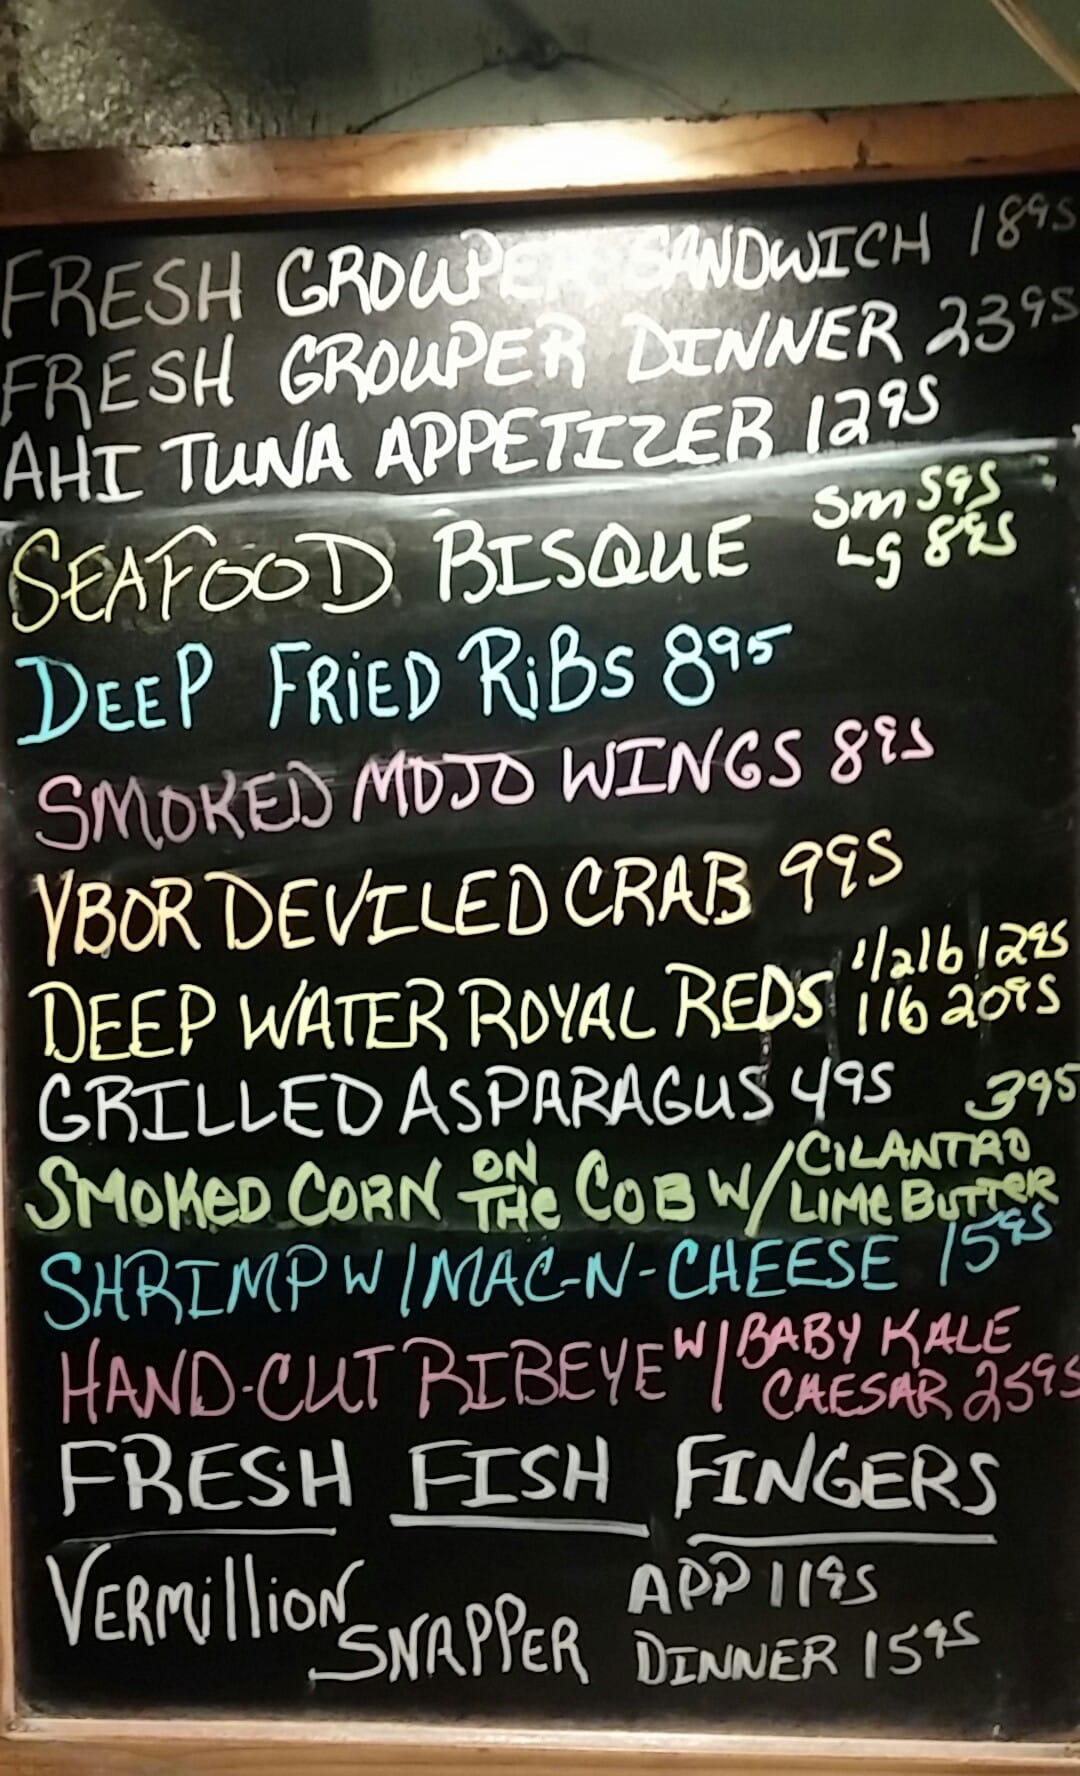 FRESH GROUPER SANDWICH 18 95
FRESH GROUPER DINNER 23 95
AHI TUNA APPETIZER 12 95
SEAFOOD BISQUE Sm 5 95
LG 8 95
DEEP FRIED RiBS 8 95
SMOKED MOJO WINGS 8 95
YBOR DEVILED CRAB 9 95
DEEP WATER ROYAL REDS 1/2 lb 12 95
1 lb 20 95
GRILLED ASPARAGUS 4 95
SMOKED CORN ON THE COB W/ CILANTRO LIME BUTTER 3 95
SHRIMP W/MAC-N-CHEESE 15 95
HAND-CUT RIBEYE W/BABY KALE
CAESAR 25 95
FRESH FISH FINGERS
VERMillION SNAPPER APP 11 95
DINNER 15 95